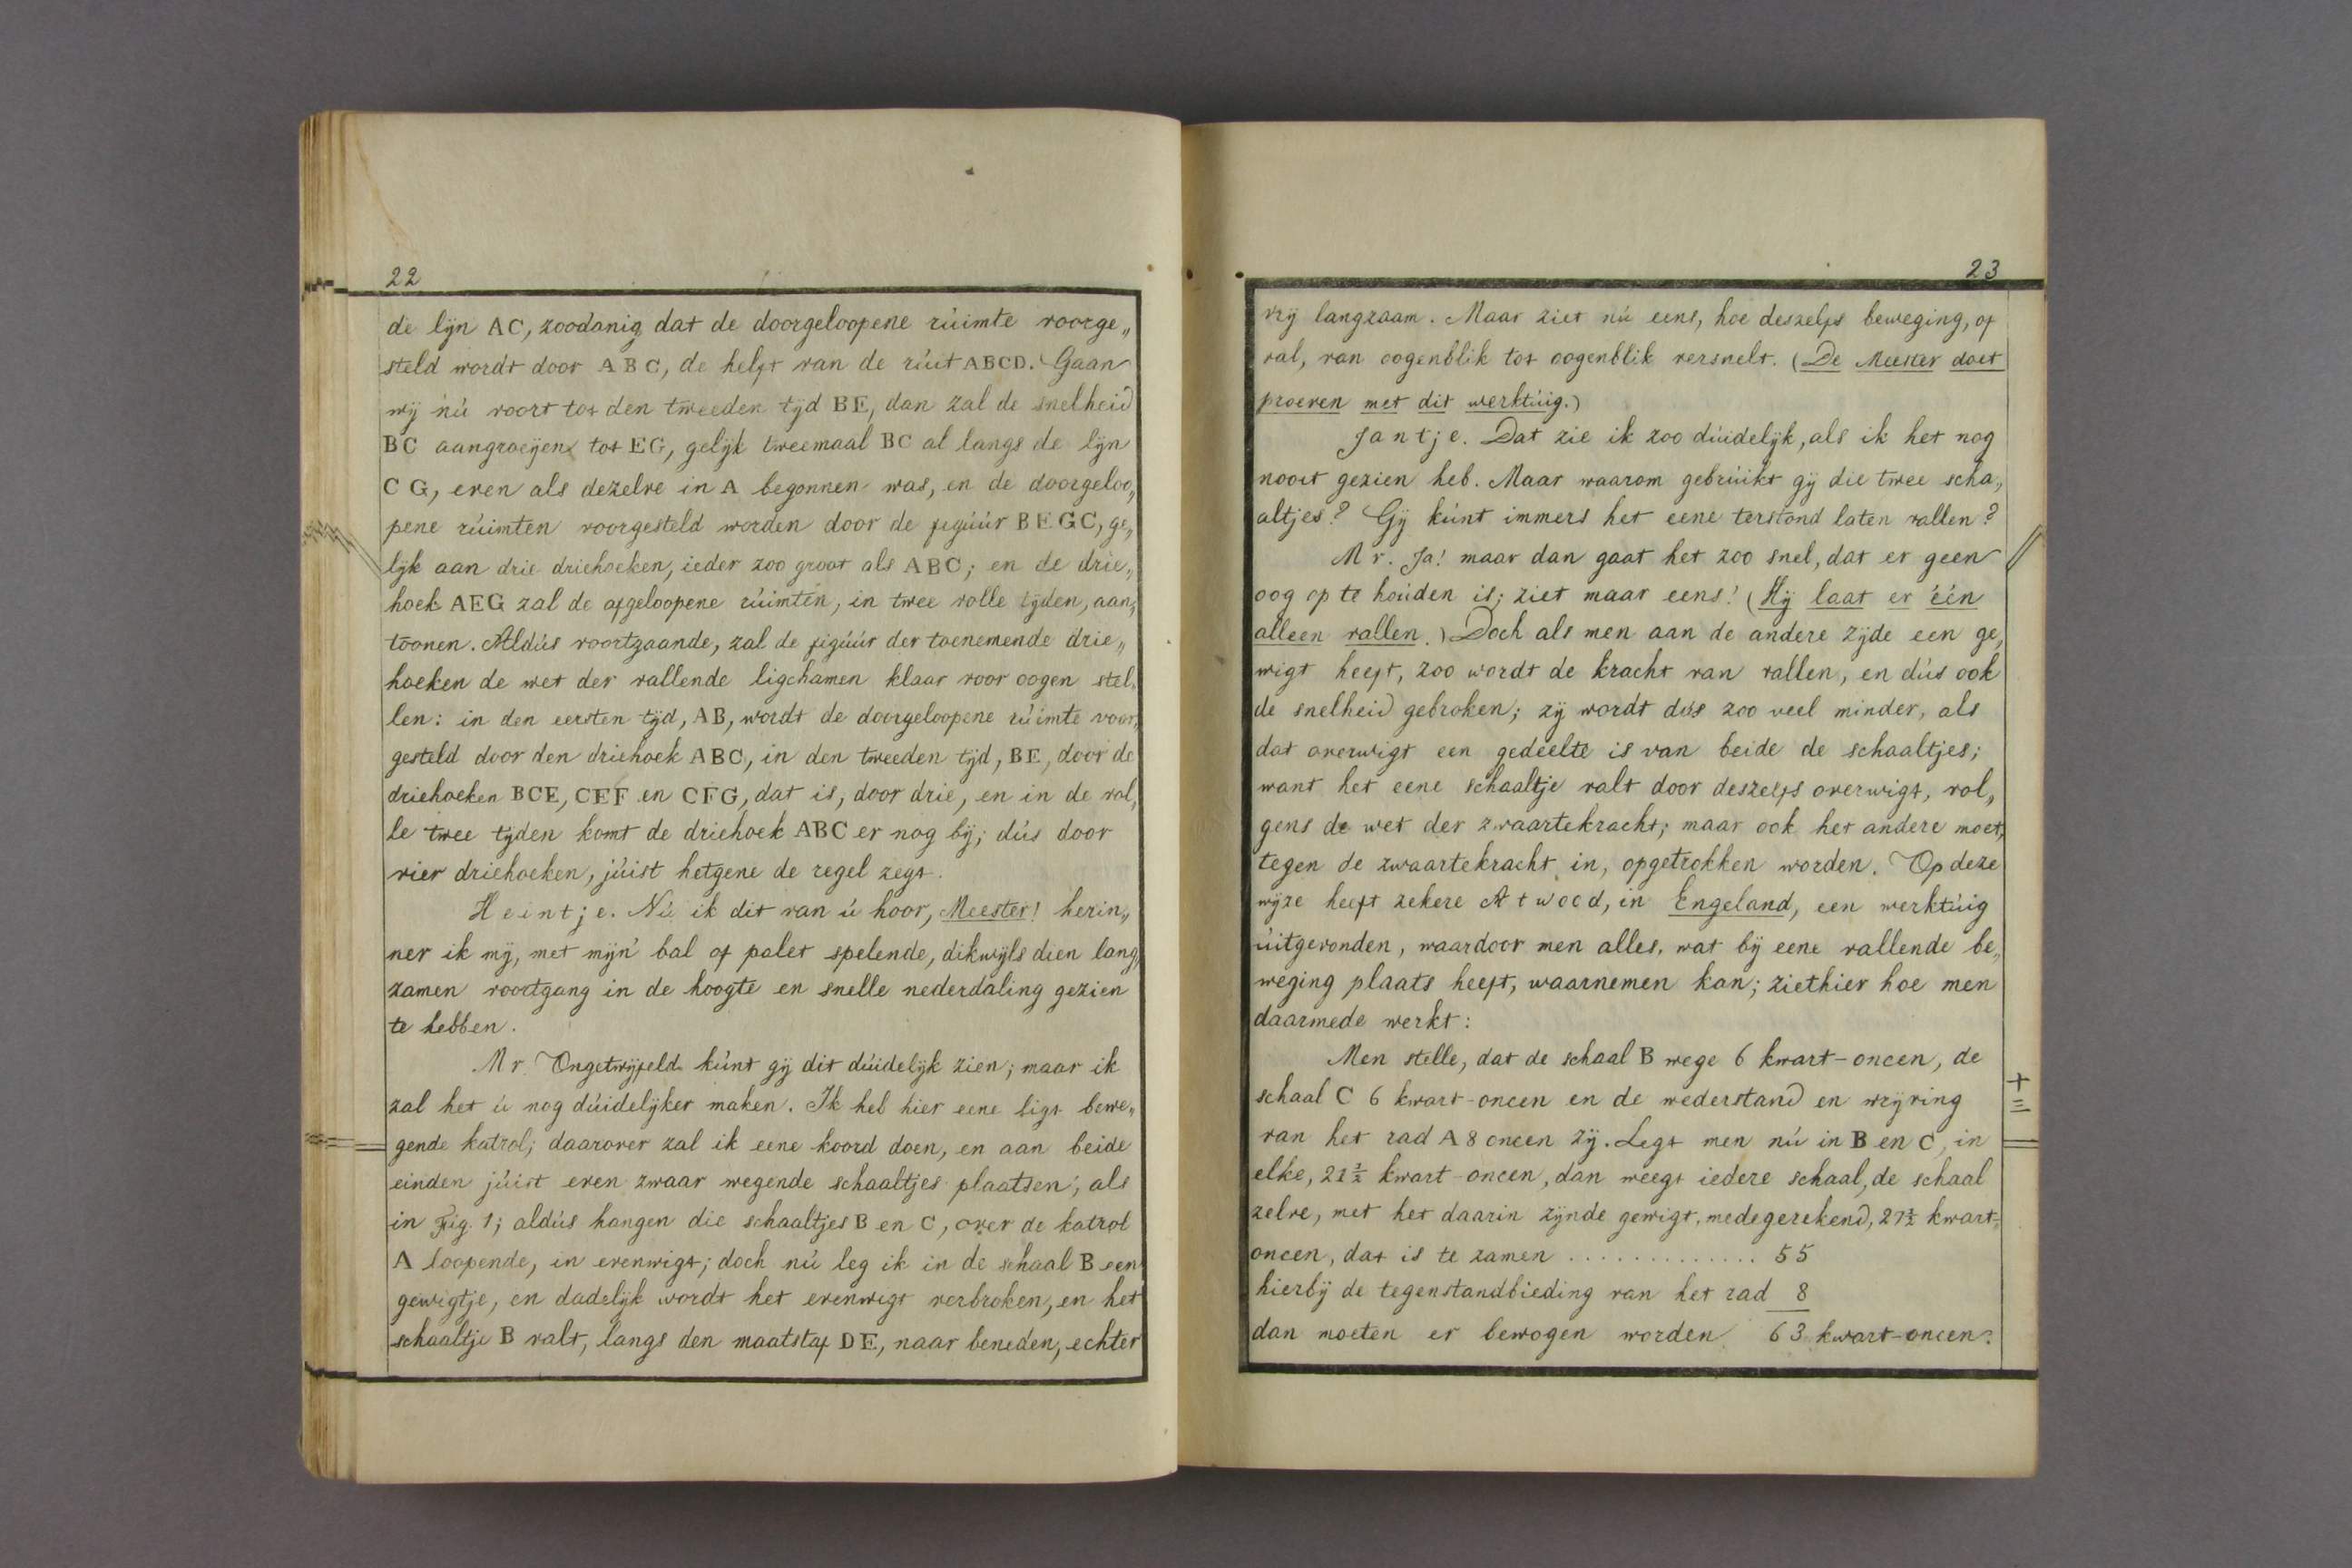 22
de lijn AC, zoodanig dat de doorgeloopene rúimte voorge„
steld wordt door ABC, de helft van de rúit ABCD. Gaan
wij nú voort tot den tweeden tijd BE, dan zal de snelheid
BC aangroeijen tot EG, gelijk tweemaal BC al langs de lijn
CG, even als dezelve in A begonnen was, en de doorgeloo„
pene rúimten voorgesteld worden door de figúúr BEGC, ge„
lijk aan drie driehoeken, ieder zoo groot als ABC; en de drie„
hoek AEG zal de afgeloopene rúimten, in twee volle tijden, aan„
toonen. Aldús voortgaande, zal de figúúr der toenemende drie„
hoeken de wet der vallende ligchamen klaar voor oogen stel„
len: in den eersten tijd, AB, wordt de doorgeloopene rúimte voor„
gesteld door den driehoek ABC, in den tweeden tijd, BE, door de
driehoeken BCE, CEF en CFG, dat is, door drie, en in de vol„
le twee tijden komt de driehoek ABC er nog bij; dús door
vier driehoeken, júist hetgene de regel zegt.
Heintje. Nú ik dit van ú hoor, Meester! herin„
ner ik mij, met mijn' bal of palet spelende, dikwijls dien lang„
zamen voortgang in de hoogte en snelle nederdaling gezien
te hebben.
Mr. Ongetwijfeld kúnt gij dit dúidelijk zien; maar ik
zal het ú nog dúidelijker maken. Ik heb hier eene ligt bewe„
gende katrol; daarover zal ik eene koord doen, en aan beide
einden júist even zwaar wegende schaaltjes plaatsen, als
in Fig. 1; aldús hangen die schaaltjes B en C, over de katrol
A loopende, in evenwigt; doch nú leg ik in de schaal B een
gewigtje, en dadelijk wordt het evenwigt verbroken, en het
schaaltje B valt, langs den maatstaf DE, naar beneden, echter
23
vrij langzaam. Maar ziet nú eens, hoe deszelfs beweging, of
val, van oogenblik tot oogenblik versnelt. (De Meester doet
proeven met dit werktúig.)
Jantje. Dat zie ik zoo dúidelijk, als ik het nog
nooit gezien heb. Maar waarom gebrúikt gij die twee scha„
altjes? Gij kúnt immers het eene terstond laten vallen?
Mr. Ja! maar dan gaat het zoo snel, dat er geen
oog op te hoúden is; ziet maar eens! (Hij laat er één
alleen vallen.) Doch als men aan de andere zijde een ge„
wigt heeft, zoo wordt de kracht van vallen, en dús ook
de snelheid gebroken; zij wordt dús zoo veel minder, als
dat overwigt een gedeelte is van beide de schaaltjes;
want het eene schaaltje valt door deszelfs overwigt, vol„
gens de wet der zwaartekracht; maar ook het andere moet,
tegen de zwaartekracht in, opgetrokken worden. Op deze
wijze heeft zekere Atwood, in Engeland, een werktúig
úitgevonden, waardoor men alles, wat bij eene vallende be„
weging plaats heeft, waarnemen kan; ziethier hoe men
daarmede werkt:
Men stelle, dat de schaal B wege 6 kwart-oncen, de
schaal C 6 kwart-oncen en de wederstand en wrijving
van het rad A 8 oncen zij. Legt men nú in B en C, in
elke, 21½ kwart-oncen, dan weegt iedere schaal, de schaal
zelve, met het daarin zijnde gewigt, medegerekend, 27½ kwart„
oncen, dat is te zamen ............. 55
hierbij de tegenstandbieding van het rad 8
dan moeten er bewogen worden 63 kwart-oncen.